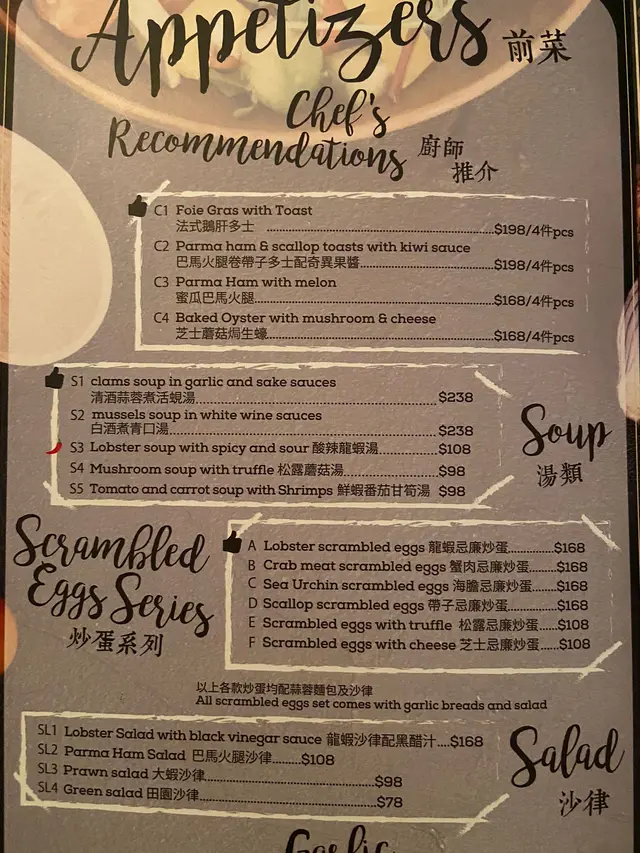 Appetizers 前菜
Chef's
Recommendations 廚師
推介
C1 Foie Gras with Toast
法式鵝肝多士 ........$198/4件pcs
C2 Parma ham & scallop toasts with kiwi sauce
巴馬火腿卷帶子多士配奇異果醬........$198/4件pcs
C3 Parma Ham with melon
蜜瓜巴馬火腿........$168/4件pcs
C4 Baked Oyster with mushroom & cheese
芝士蘑菇焗生蠔........$168/4件pcs
S1 clams soup in garlic and sake sauces
清酒蒜蓉煮活蜆湯........$238
S2 mussels soup in white wine sauces
白酒煮青口湯........$238
S3 Lobster soup with spicy and sour 酸辣龍蝦湯........$108
S4 Mushroom soup with truffle 松露蘑菇湯........$98
S5 Tomato and carrot soup with Shrimps 鮮蝦番茄甘筍湯 $98
Soup
湯類
Scrambled
Eggs Series
炒蛋系列
A Lobster scrambled eggs 龍蝦忌廉炒蛋........$168
B Crab meat scrambled eggs 蟹肉忌廉炒蛋........$168
C Sea Urchin scrambled eggs 海膽忌廉炒蛋........$168
D Scallop scrambled eggs 帶子忌廉炒蛋........$168
E Scrambled eggs with truffle 松露忌廉炒蛋......$108
F Scrambled eggs with cheese 芝士忌廉炒蛋......$108
以上各款炒蛋均配蒜蓉麵包及沙律
All scrambled eggs set comes with garlic breads and salad
SL1 Lobster Salad with black vinegar sauce 龍蝦沙律配黑醋汁....$168
SL2 Parma Ham Salad 巴馬火腿沙律........$108
SL3 Prawn salad 大蝦沙律........$98
SL4 Green salad 田園沙律........$78
Salad
沙律
Garlic